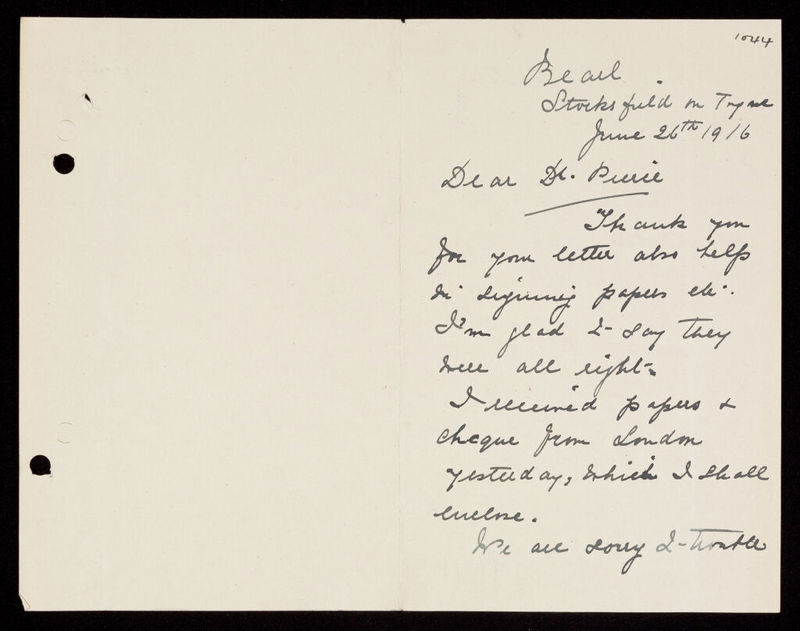 1044
Bearl.
Stocksfield on Tyne
June 26th 1916
Dear Dr. Pirrie
Thank you
for your letter also help
in signing papers etc.
I'm glad to say they
were all right.
I received papers &
cheque from London
yesterday, which I shall
enclose.
We are sorry to trouble